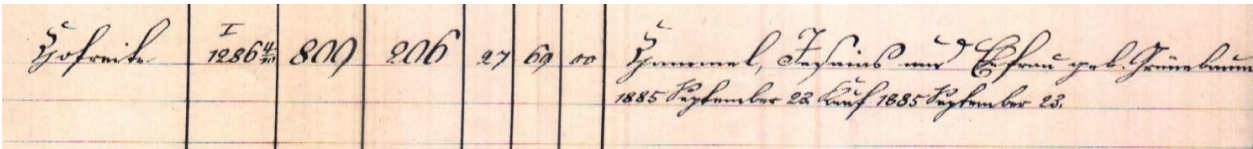 Hofreite I 1286 4/10 809 206 27 69 00 Hammel, Jesaias und Ehefrau geb. Grünebaum
1885 September 22. Kauf 1885 September 23.